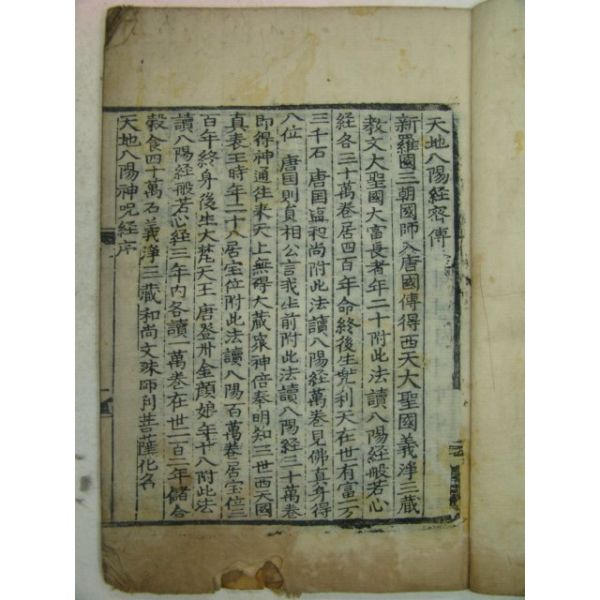 天地八陽経密傳
新羅國三朝國師入唐國傳得西天大聖國義淨三藏
教文大聖國大富長者年二十附此法讀八陽経般若心
経各三十萬卷居四百年命終後生兜利天在世有富一万
三千石 唐国 和尚附此法讀八陽経萬卷見佛真身得
八位 唐国則貞相公言我生前附此法讀八陽経三十萬卷
即得神通往来天上無㝵大藏衆神倍奉明知三世西天國
真表王時年二十八居宝位附此法讀八陽百萬卷居宝位三
百年終身後生大梵天王唐登州金顔娘年十八附此法
讀八陽経般若心経三年內各讀一萬卷在世二百二年儲合
穀食四十萬石義淨三藏和尚文殊師利菩薩化名
天地八陽神呪経序